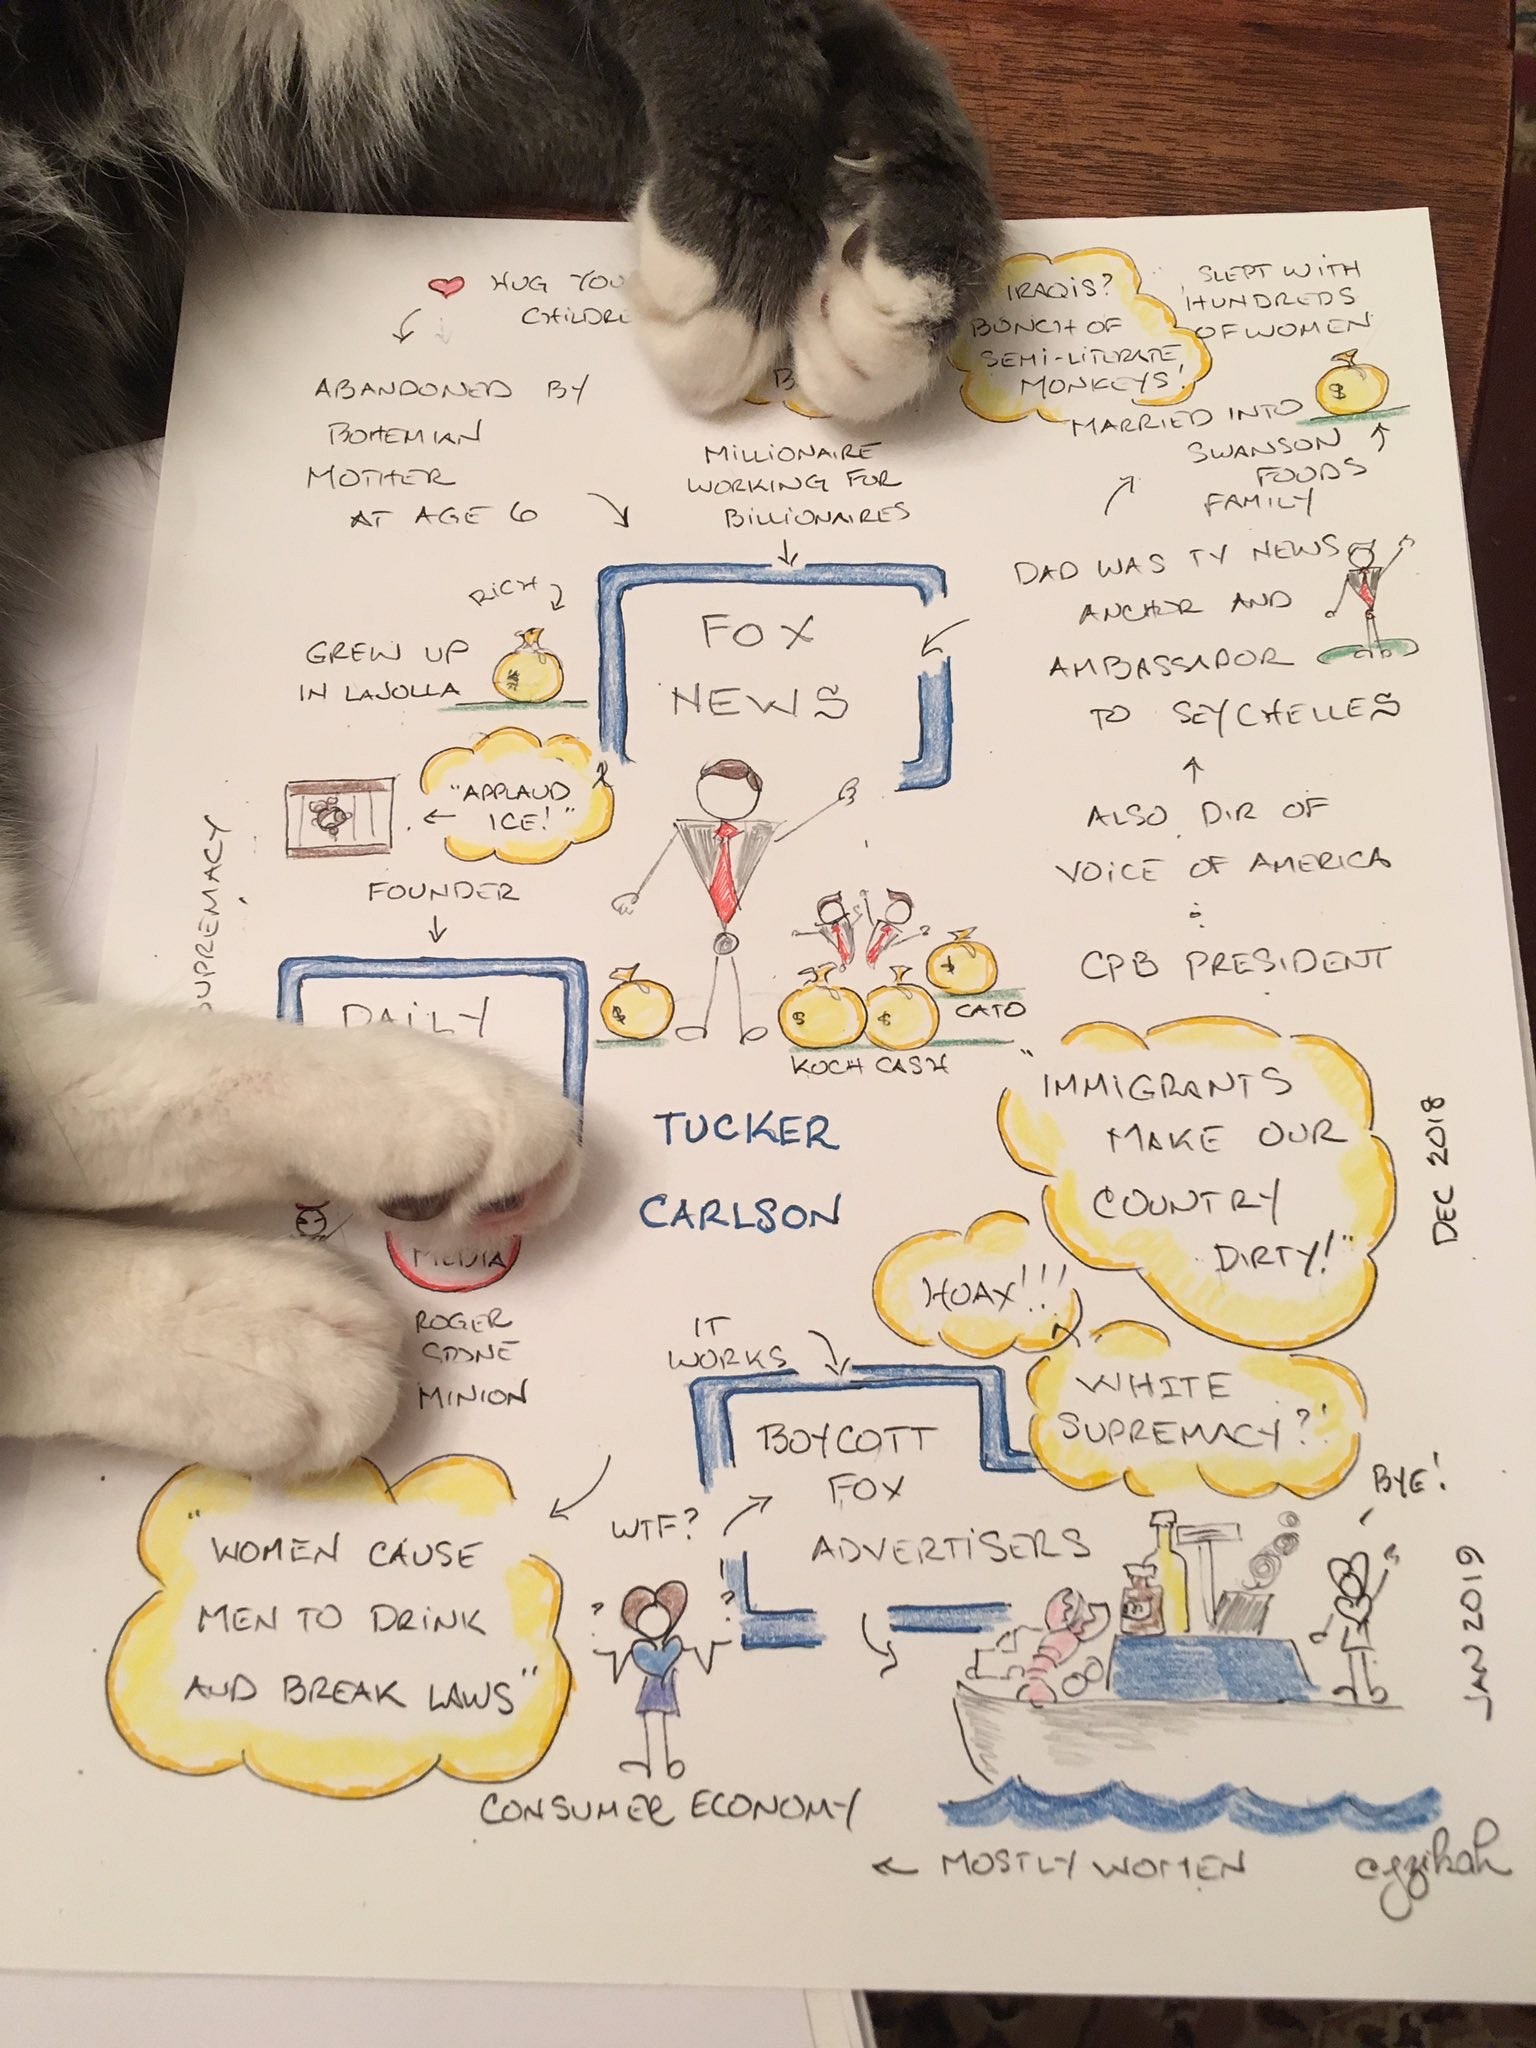 HUG YOU
CHILDRE
ABANDONED BY
BOHEMIAN
MOTHER
AT AGE 6
MILLIONAIRE
WORKING FOR
BILLIONAIRES
IRAQIS?
BUNCH OF
SEMI-LITERATE
MONKEYS!
SLEPT WITH
HUNDREDS
OF WOMEN
$
MARRIED INTO
SWANSON
FOODS
FAMILY
DAD WAS TV NEWS
ANCHOR AND
AMBASSADOR
TO SEYCHELLES
ALSO DIR OF
VOICE OF AMERICA
CPB PRESIDENT
RICH
GREW UP
IN LAJOLLA
FOX
NEWS
"APPLAUD
ICE!"
FOUNDER
DAILY
SUPREMACY
MEDIA
ROGER
STONE
MINION
$
$
$
CATO
KOCH CASH
TUCKER
CARLSON
"IMMIGRANTS
MAKE OUR
COUNTRY
DIRTY!"
DEC 2018
HOAX!!!
WHITE
SUPREMACY?!
IT
WORKS
BOYCOTT
FOX
ADVERTISERS
WTF?
? ?
BYE!
JAN 2019
"WOMEN CAUSE
MEN TO DRINK
AND BREAK LAWS"
CONSUMER ECONOMY
← MOSTLY WOMEN
cyzikah